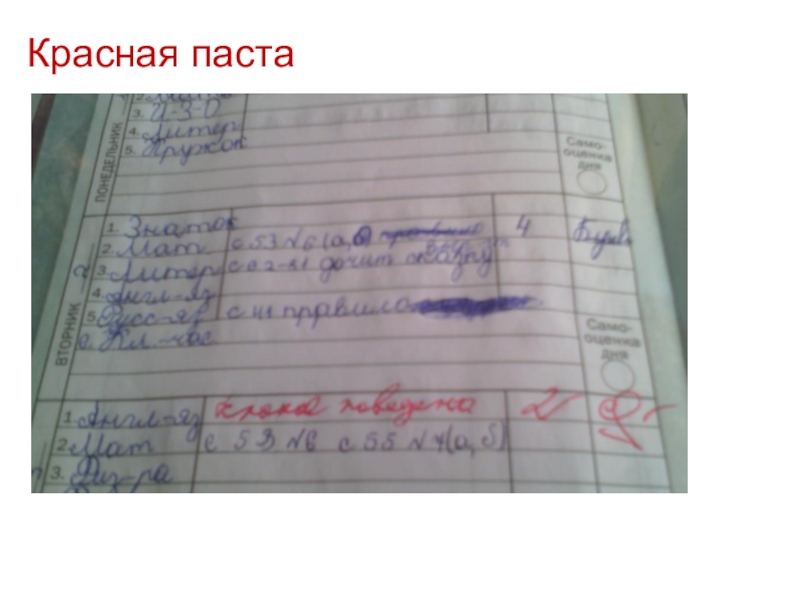 Красная паста
3. И-З-О
4. Литер
5. Кружок
ПОНЕДЕЛЬНИК
Само-
оценка
дня
1. Знаток
2. Мат с 53 №6 (а, б) правило 4
3. Литер дочит
4. Англ-яз
5. Русс-яз правило
6. Кл.-час
ВТОРНИК
Само-
оценка
дня
1. Англ-яз плохое поведена 2
2. Мат с 53 №6 с 55 №7(а, б)
3. Физ-ра